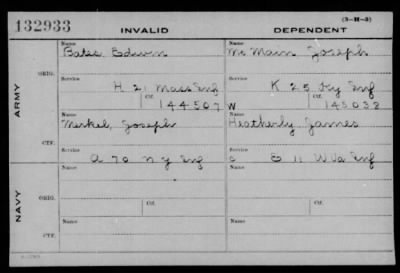 132933 INVALID DEPENDENT (3-H-3)
Name Name
Bates Edwin McMain Joseph
ORIG. Service Service
H 21 Mass Inf K 25 Ky Inf
Ctf. Ctf.
144507 W 143038
ARMY
Name Name
Merkel, Joseph Heatherly James
CTF. Service Service
A 70 N Y Inf C E 11 W Va Inf
Name Name
ORIG. Service Ctf. Service Ctf.
NAVY
Name Name
CTF. Service Service